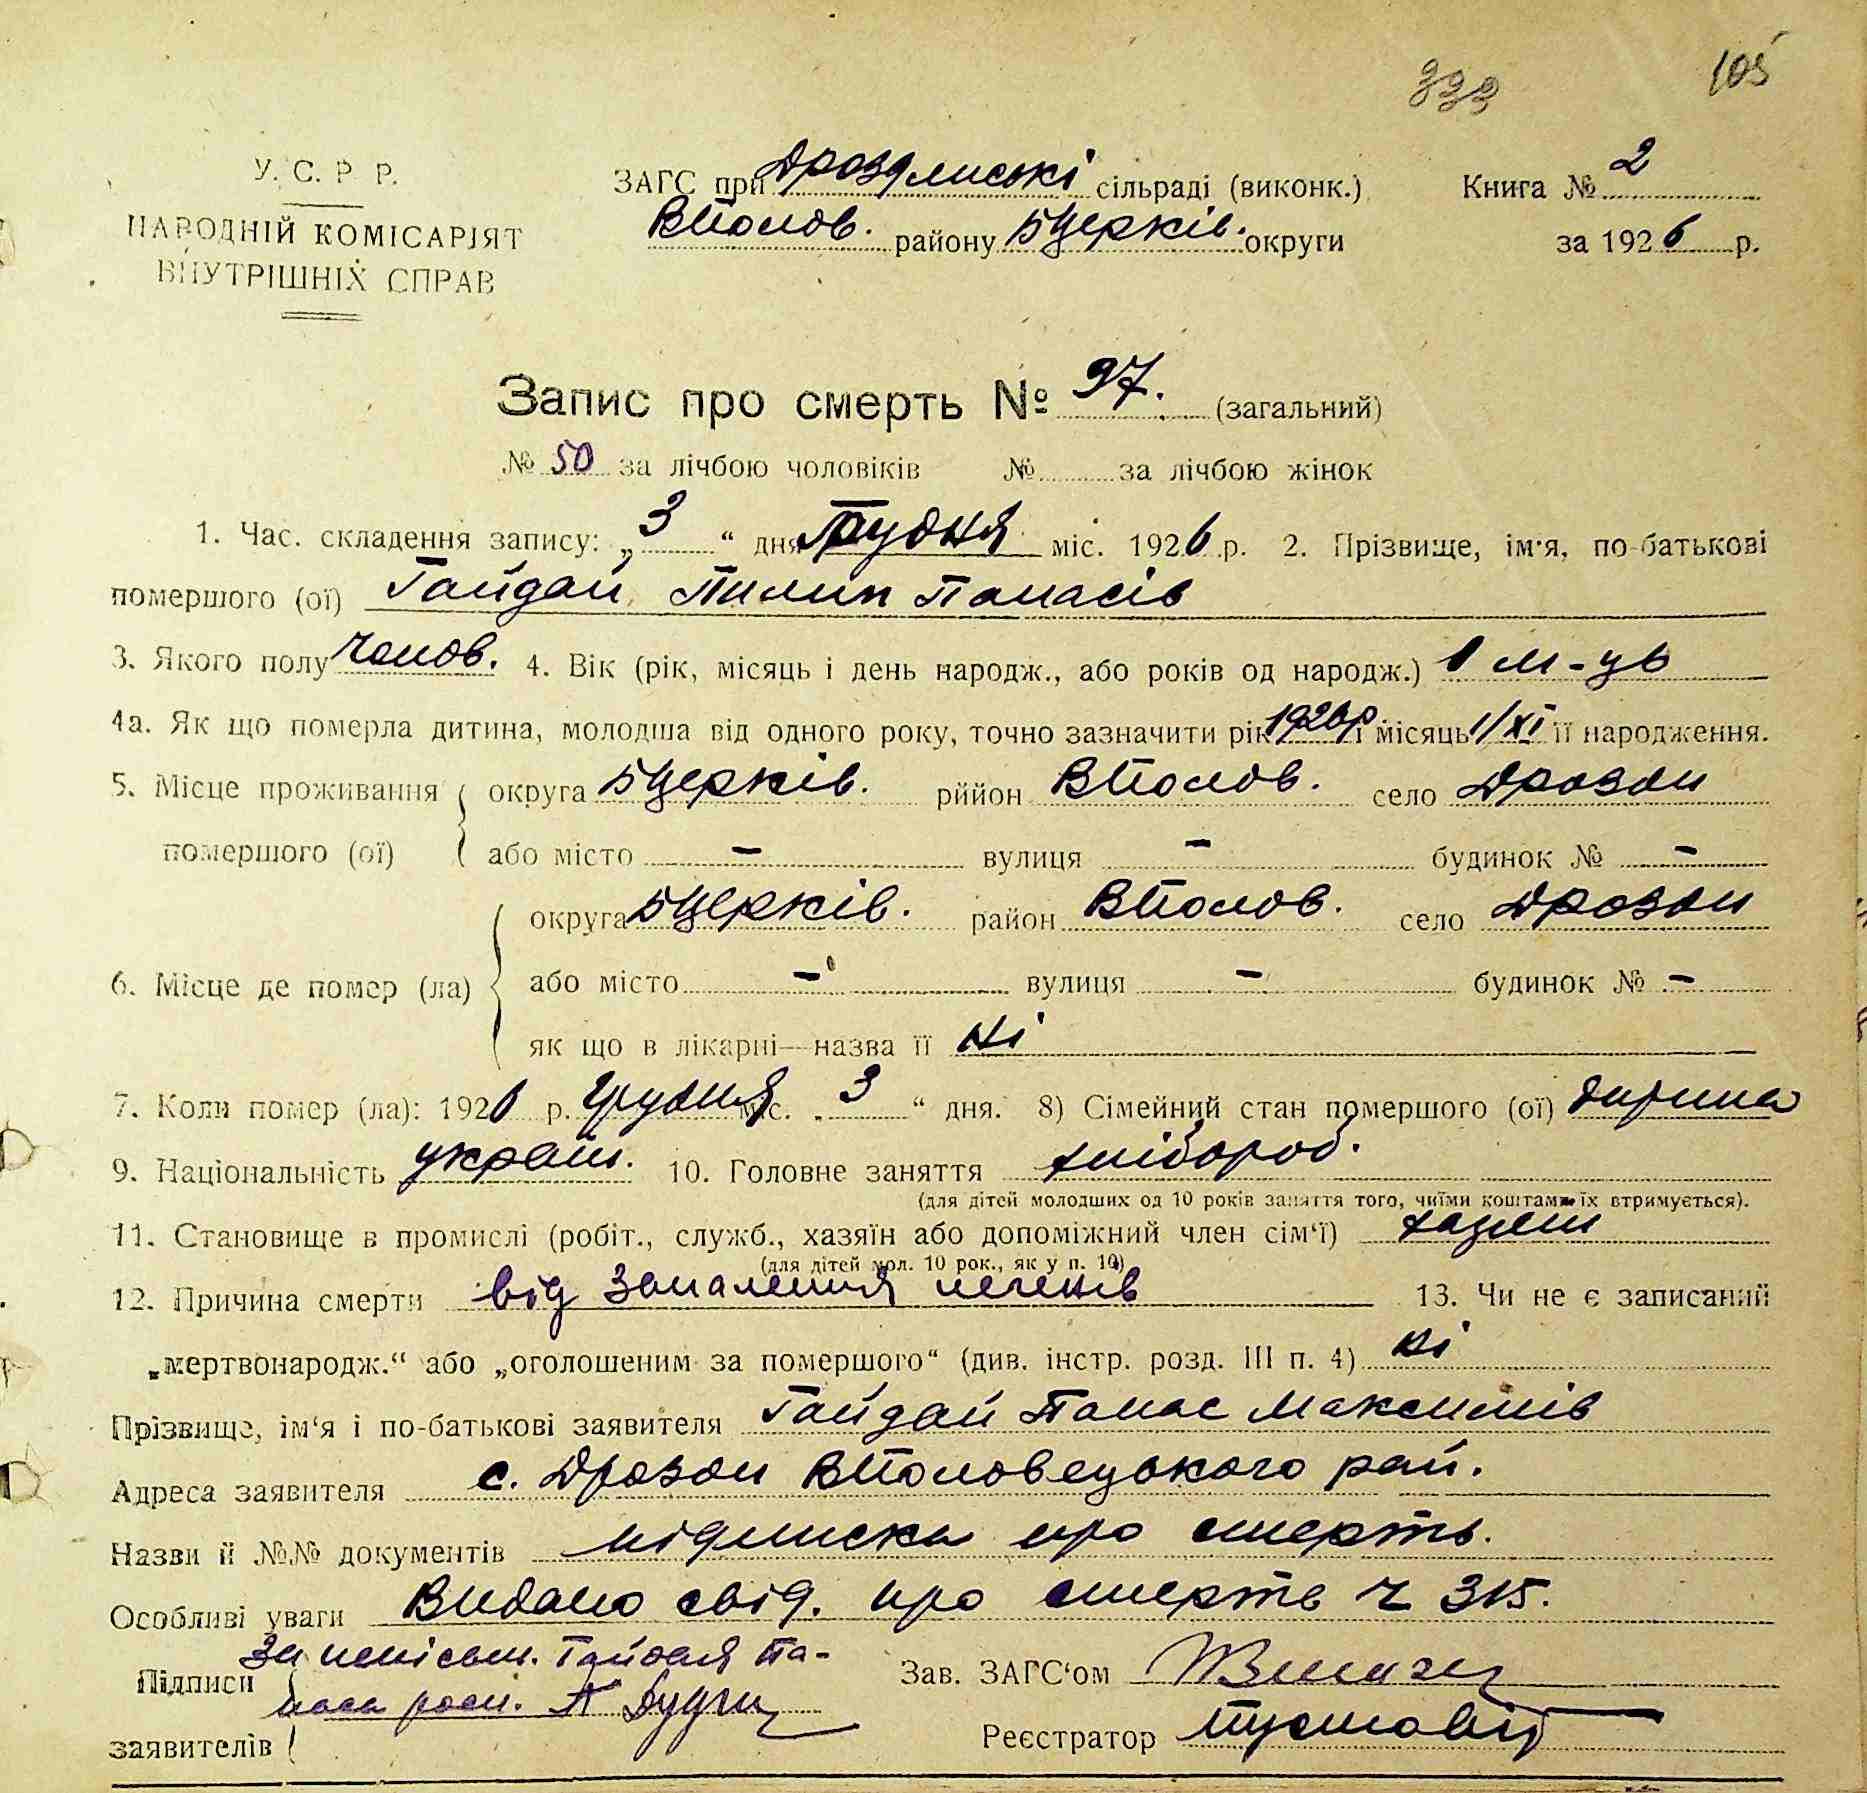 333 105
У. С. Р. Р.
НАРОДНІЙ КОМІСАРІЯТ
ВНУТРІШНІХ СПРАВ
ЗАГС при Дроздянські сільраді (виконк.) Книга № 2
ВПолов. району БЦерків. округи за 1926 р.
Запис про смерть № 97. (загальний)
№ 50 за лічбою чоловіків № за лічбою жінок
1. Час. складення запису: „3“ дня Грудня міс. 1926 р. 2. Прізвище, ім'я, по-батькові
помершого (ої) Гайдай Пилип Панасів
3. Якого полу чолов. 4. Вік (рік, місяць і день народж., або років од народж.) 1 м-ць
4а. Як що померла дитина, молодша від одного року, точно зазначити рік 1926р і місяць 1/XI її народження.
5. Місце проживання округа БЦерків. рййон ВПолов. село Дрозди
помершого (ої) або місто – вулиця – будинок № –
округа БЦерків. район ВПолов. село Дрозди
6. Місце де помер (ла) або місто – вулиця – будинок № –
як що в лікарні—назва її ні
7. Коли помер (ла): 1926 р. грудня міс. „3“ дня. 8) Сімейний стан помершого (ої) дитина
9. Національність україн. 10. Головне заняття хлібороб.
(для дітей молодших од 10 років заняття того, чиїми коштами їх втримується).
11. Становище в промислі (робіт., служб., хазяїн або допоміжний член сім'ї) хазяїн
(для дітей мол. 10 рок., як у п. 10)
12. Причина смерти від запалення легенів 13. Чи не є записаний
„мертвонародж.“ або „оголошеним за помершого“ (див. інстр. розд. III п. 4) ні
Прізвище, ім'я і по-батькові заявителя Гайдай Панас Максимів
Адреса заявителя с. Дрозди ВПоловецького рай.
Назви й №№ документів підписка про смерть.
Особливі уваги Видано свід. про смерть ч 315.
За неписьм. Гайдая Па-
Підписи наса розп. А
Зав. ЗАГС'ом
заявителів Реєстратор